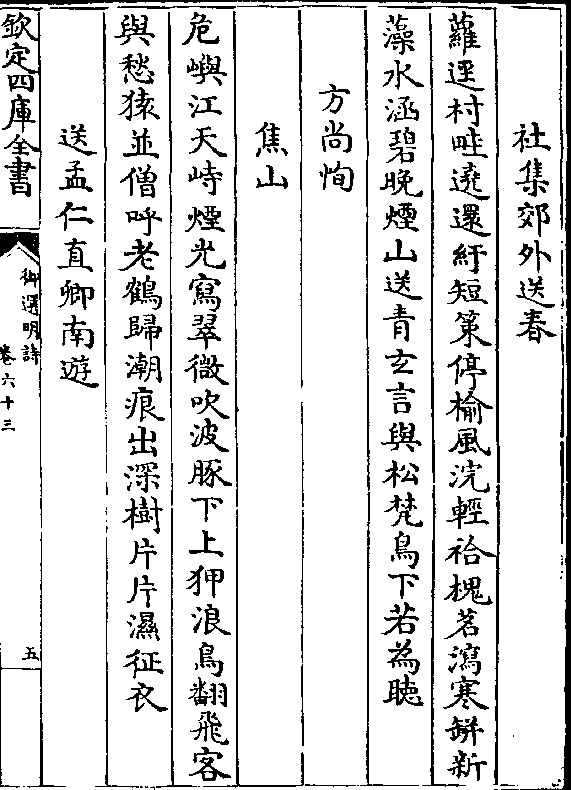 社集郊外送春
蘿逕村畦遶還紆短策停榆風浣輕袷槐茗瀉寒缾新
藻水涵碧晚煙山送青玄言與松梵鳥下若為聴
方尚恂
焦山
危嶼江天峙煙光寫翠微吹波豚下上狎浪鳥翻飛客
與愁猿並僧呼老鶴歸潮痕出深樹片片濕征衣
送孟仁直卿南遊
欽定四庫全書
御選明詩
卷六十三
五